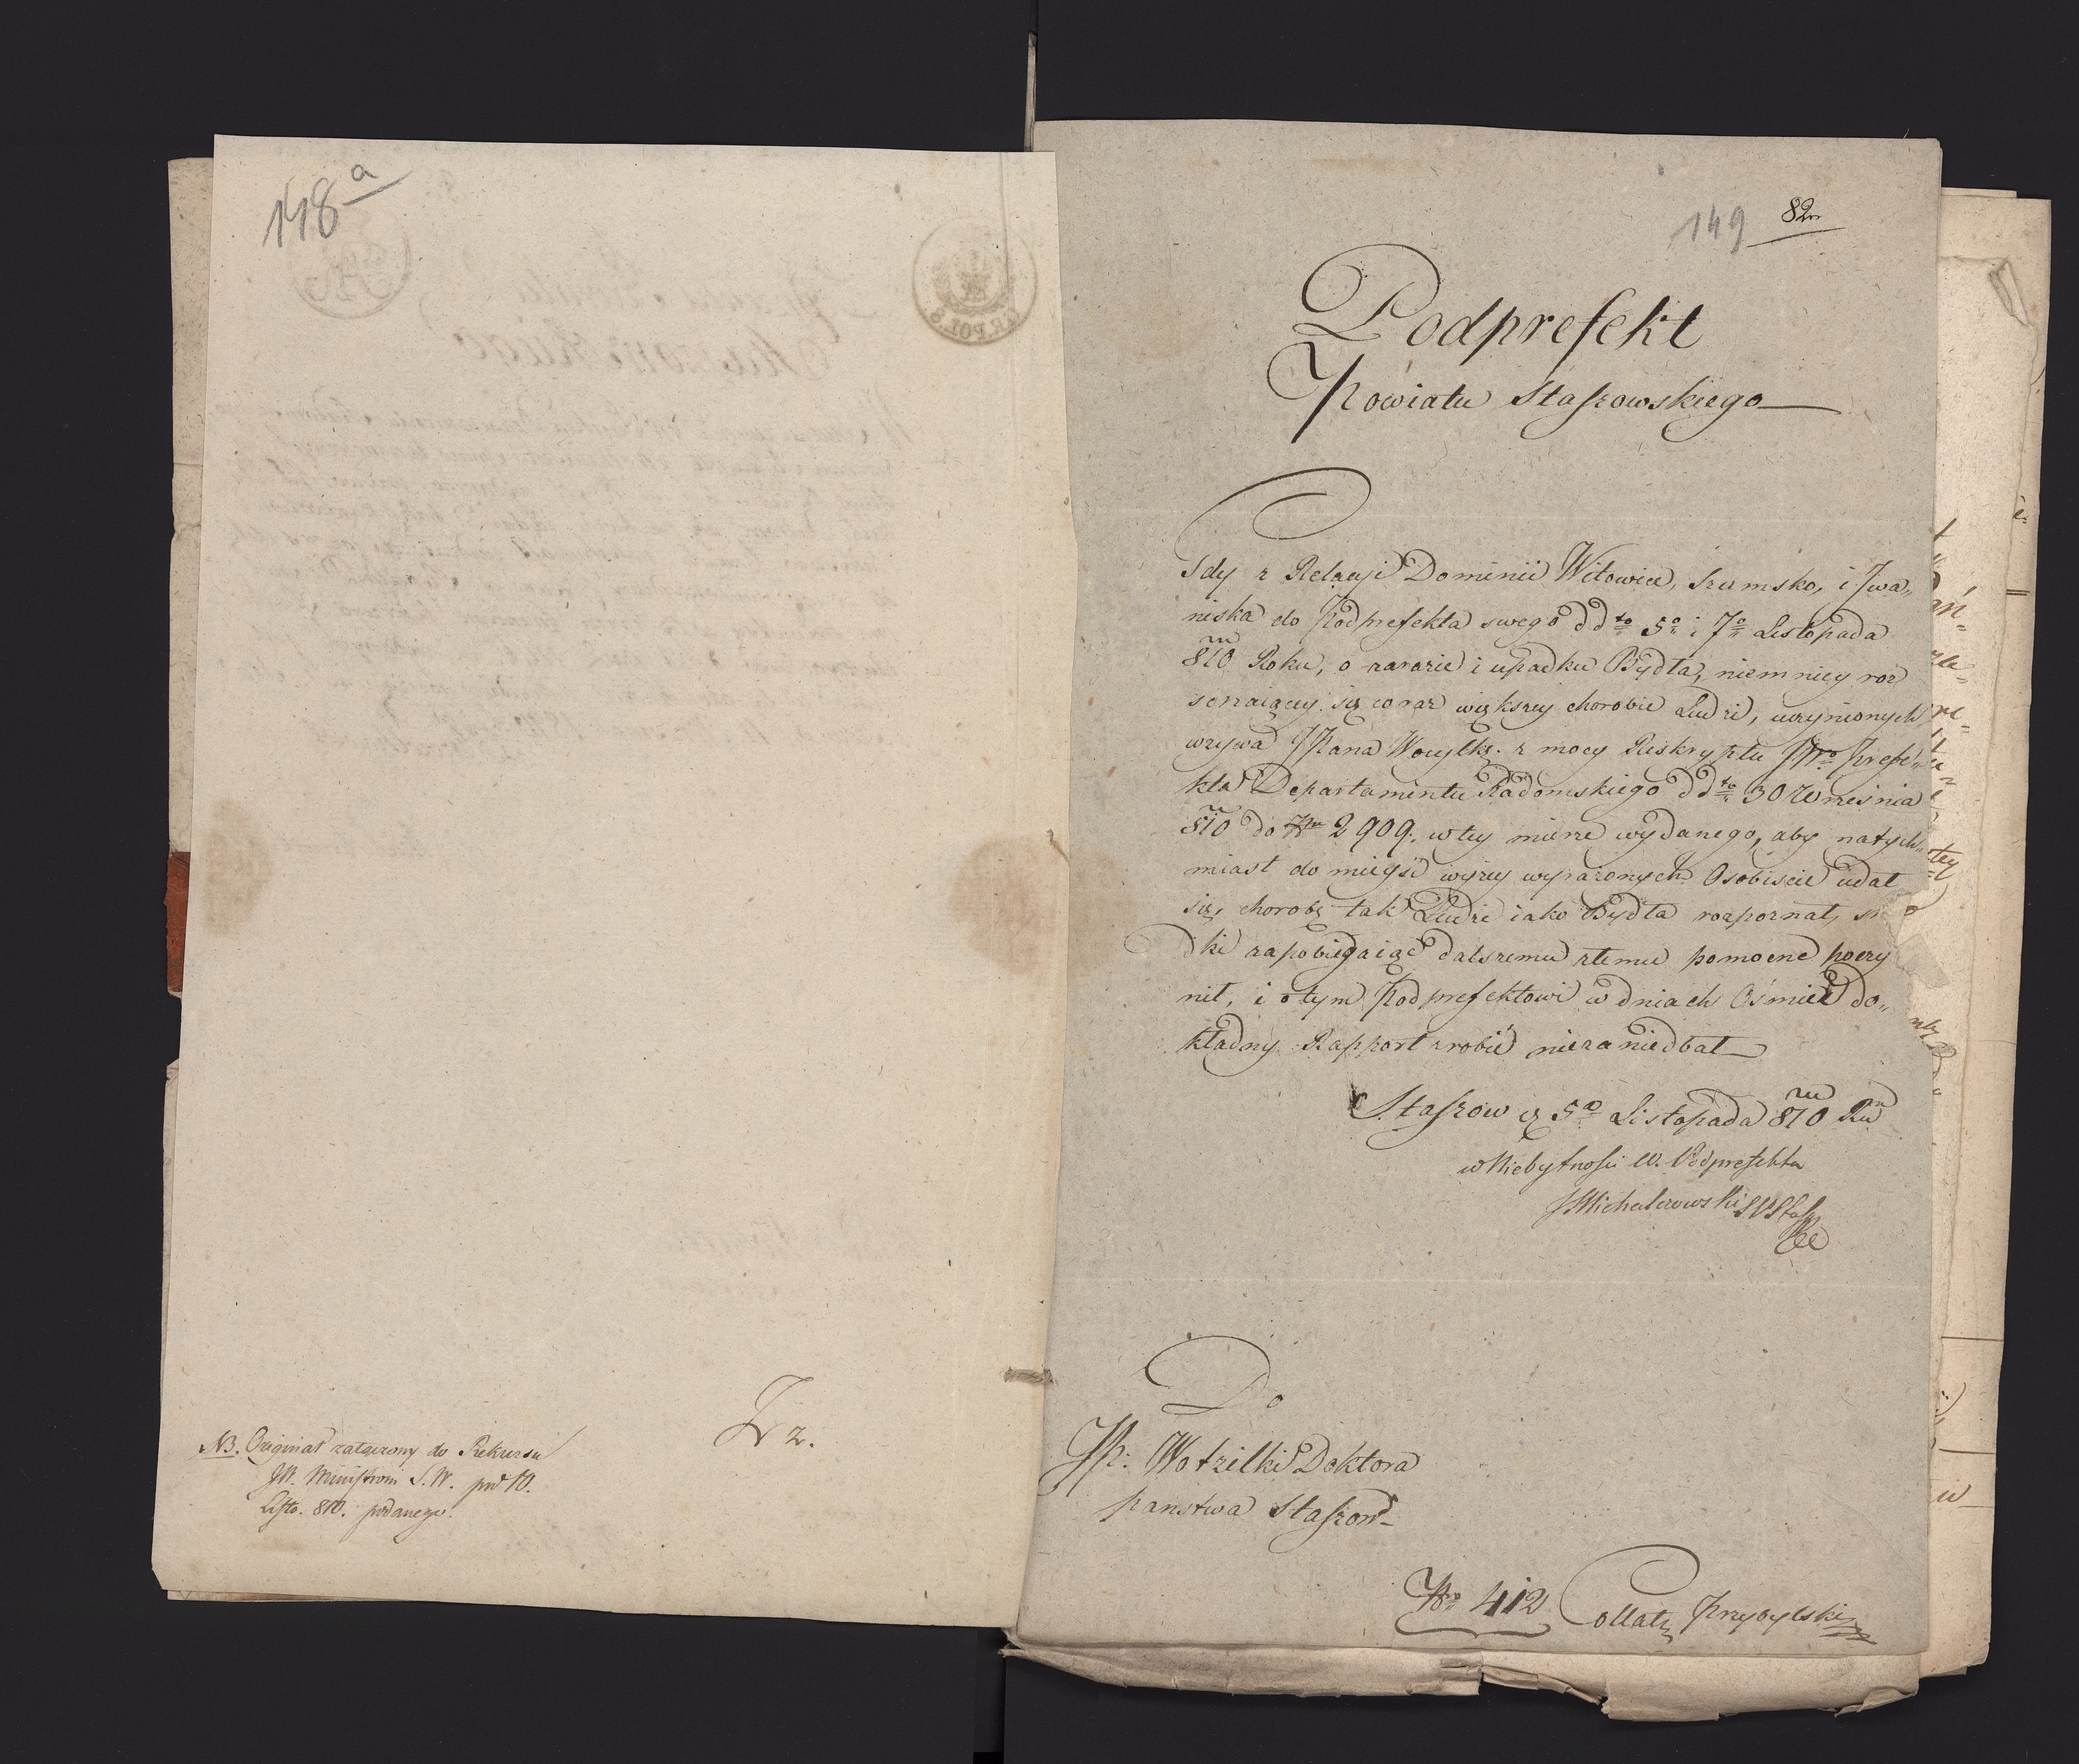 148 a
NB. Originał załączony do Rekursu
JW. Ministrowi S. W. pod 10.
Listo. 810. podanego.
N 2.
149 82
Podprefekt
Powiatu Staszowskiego
Gdy z Relacyi Dominii Witowice, Szumsko, i Jwa„
niska do Podprefekta swego dd to 5o i 7o Listopada
810 Roku, o zarazie i upadku Bydła, niemniey roz
szerzaiącey się coraz większey chorobie Ludzi, uczynionych
wzywa JPana Wocylkę. z mocy Reskryptu JWo Prefe„
kta Departamentu Radomskiego dd to 30 Wrzesnia
810 do Nru 2909. w tey mierze wydanego, aby natych„
miast do mieysc wyzey wyrażonych Osobiscie udał
się, chorobę tak Ludzi iako Bydła rozpoznał,
dki zapobiegaiąc dalszemu złemu pomocne poczy
nił, i o tym Podprefektowi w dniach Ośmiu do„
kładny Rapport zrobić niezaniedbał
Staszow d. 5o Listopada 810 Ru
w Niebytnosci W. Podprefekta
JMichalczowski
Do
JP: Wotzilki Doktora
państwa Staszow
No 412 Collat. Przybylski